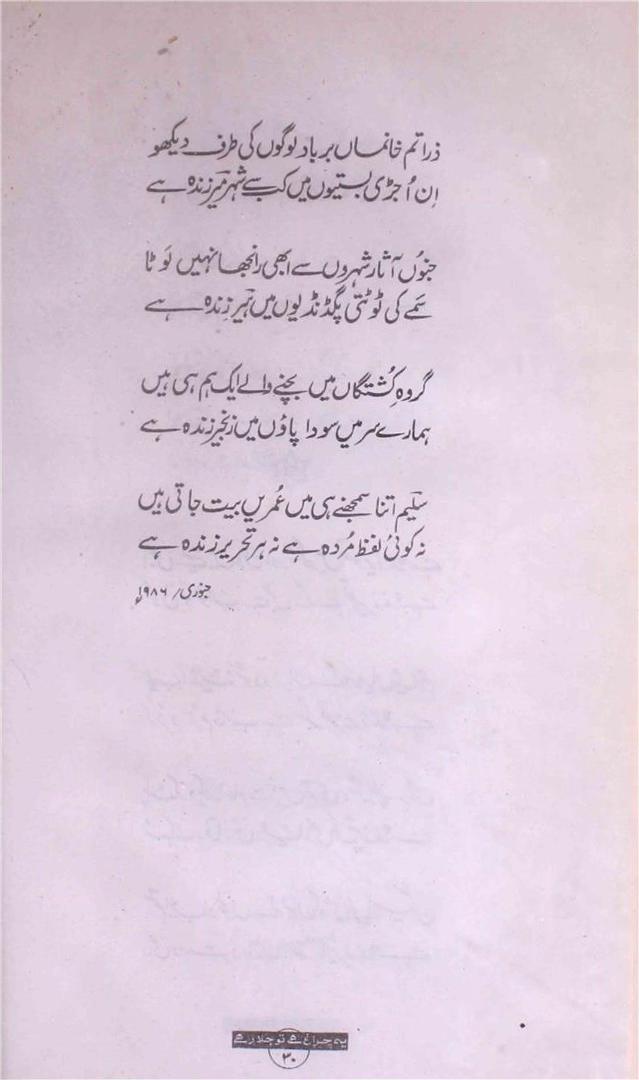 ذرا تم خانماں برباد لوگوں کی طرف دیکھو
اِن اُجڑی بستیوں میں کب سے شہرِ میرؔ زندہ ہے
جنوُں آثار شہروں سے ابھی رانجھا نہیں لَوٹا
سَمے کی ٹوٹتی پگڈنڈیوں میں ہیرؔ زندہ ہے
گروہِ کُشتگاں میں بچنے والے ایک ہم ہی ہیں
ہمارے سر میں سودا پاؤں میں زنجیر زندہ ہے
سلیمؔ اتنا سمجھنے ہی میں عُمریں بیت جاتی ہیں
نہ کوئی لفظ مُردہ ہے نہ ہر تحریر زندہ ہے
جنوری/ ۱۹۸۶ء
یہ چراغ ہے تو جلا رہے
۳۰